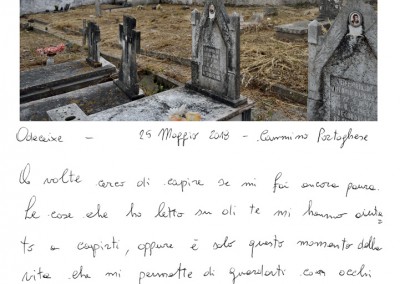 Odeceixe – 25 Maggio 2018 – Cammino Portoghese
A volte cerco di capire se mi fai ancora paura.
Le cose che ho letto su di te mi hanno aiuta
to a capirti, oppure è solo questo momento della
vita che mi permette di guardarti con occhi